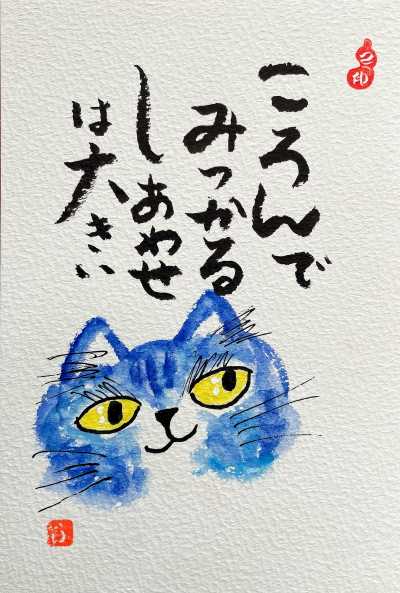 ころんで
みつかる
しあわせ
は大きい